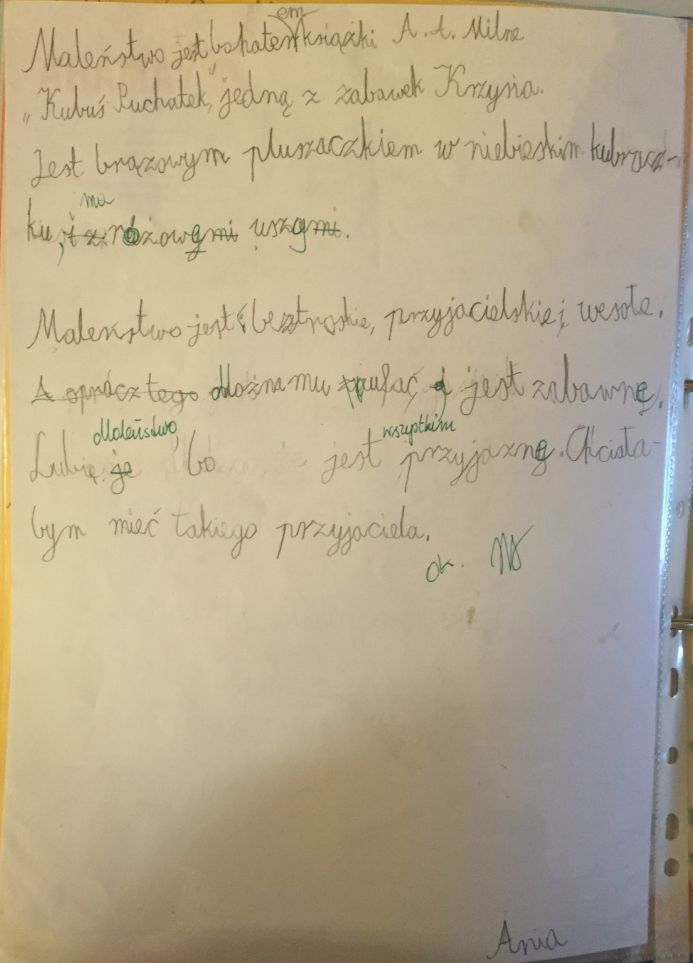 Maleństwo jest bohaterem książki A. A. Milne
"Kubuś Puchatek", jedną z zabawek Krzysia.
Jest brązowym pluszaczkiem w niebieskim kubracz-
ku, i z ma różowymi uszami.
Maleństwo jest beztroskie, przyjacielskie i wesołe.
A oprócz tego Można mu zaufać i jest zabawne.
Lubię je Maleństwo, bo jest wszystkim przyjazne. Chciała-
bym mieć takiego przyjaciela.
ok.
Ania